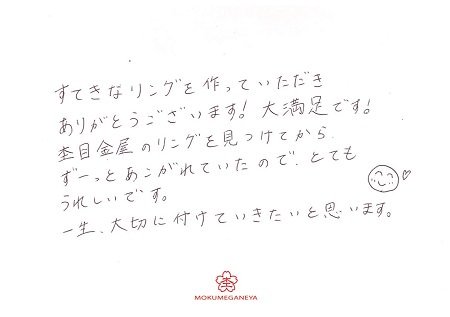 すてきなリングを作っていただき
ありがとうございます！大満足です！
杢目金屋のリングを見つけてから、
ずーっとあこがれていたので、とても
うれしいです。
一生、大切に付けていきたいと思います。
杢
MOKUMEGANEYA